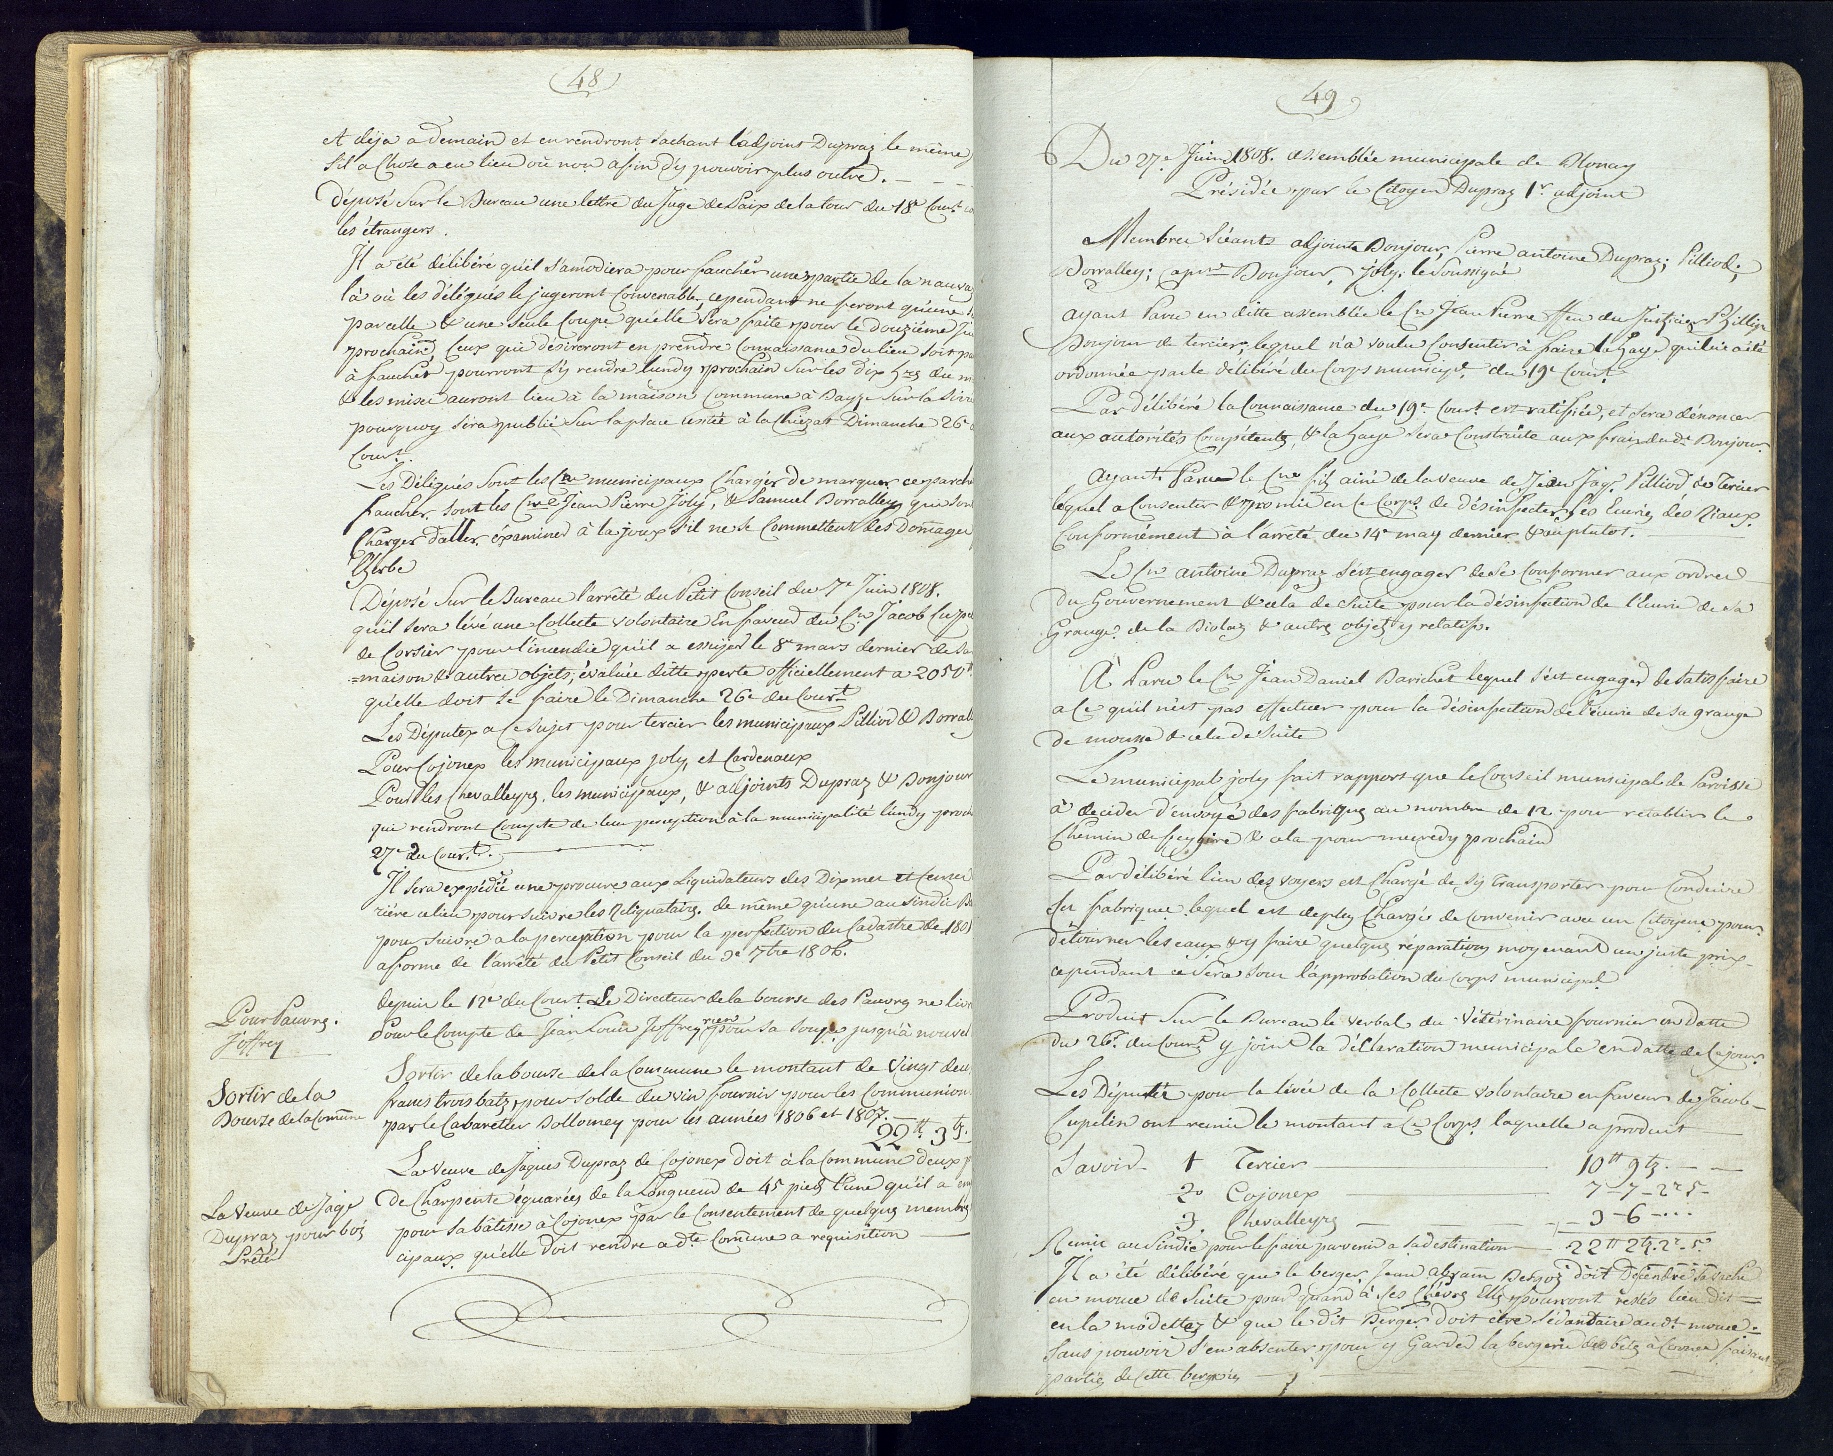 48
et déja a demain et en rendront sachant l'adjoint Dupraz le même
sil a Chose a eu lieu où non afin d'y pouvoir plus outre.
déposé Sur le Bureau une lettre du Juge de Paix de la tour du 18e Cour.t
les étrangers.
Il a été délibéré quil s'amodiera pour faucher une partie de la
là où les délégués le jugeront Convenable, cependant ne feront qu'une
parcelle & une Seule Coupe qu'elle Sera faite pour le douzième
prochain, Ceux qui désireront en prendre Connaissance du lieu soit
à faucher pourront S'y rendre lundy prochain Sur les dix h.res du
& les mises auront lieu à la maison Commune à
pourquoy Sera publié Sur la place usitée à la Chiézaz Dimanche 26e
Court.
Les Délégués Sont les Cns municipaux Chargés de marquer ce
faucher, sont les Cns Jean Pierre Joly, & Samuel Borralley, qui sont
Charger d'aller examiner à la joux s'il ne se Commettent des Domages
Zerbe
Déposé Sur le Bureau l'arrêté du Petit Conseil du 7e Juin 1808.
qu'il sera lévé une Collecte volontaire En faveur du Cn Jacob
de Corsier pour l'incendie qu'il a essuyer le 8e mars dernier de sa
maison & autres objets, évaluée ditte perte officiellement a 2050
qu'elle doit se faire le Dimanche 26e du Cour.t
Les Députez a ce Sujet pour tercier les municipaux Pilliod & Borralley
Pour Cojonex les municipaux joly, et Cardenaux
Pour les Chevalleyres, les municipaux, & adjoints Dupraz & Bonjour
qui rendront Compte de leur perception à la municipalité lundy
27e du Cour.t
Il sera expédié une procure aux Liquidateurs des Dixmes et Censes
rière ce lieu pour suivre les Réliquataires. de même qu'une au Sindic
pour suivre a la perception pour la perfection du Cadastre de
a forme de l'arrêté du Petit Conseil du 7bre 1806.
Pour Pauvres.
Joffrey
depuis le 12e du Cour.t Le Directeur de la bourse des Pauvres ne
Pour le Compte de Jean Louis Joffrey rien pour sa soupe jusqu'à nouvel
Sortir de la
Bourse de la Comune
Sortir de la bourse de la Commune le montant de Vingt deux
francs trois batz, pour solde du vin fournir pour les Communions
par le Cabaretier Dollomey pour les années 1806 et 1807.
22 tt 3 tz.
La Veuve de Jaqe
Dupraz pour bois
Prêté
La Veuve de Jaques Dupraz de Cojonex doit à la Commune deux
de Charpente équarées de la Longueur de 45 pieds l'une qu'il a
pour sa bâtisse à Cojonex par le Consentement de quelques membres
cipaux qu'elle doit rendre a dte Comune a requisition
49
Du 27e Juin 1808. assemblée municipale de Blonay
Présidée par le Citoyen Dupraz 1r adjoint
Membres Séants adjoints Bonjour, Pierre antoine Dupraz; Pilliod;
Borralley; Bonjour, Joly, le Soussigné
ayant Paru en ditte assemblée le Cn Jean Pierre ffeu du Justicier
Bonjour de tercier, lequel n'a voulu Consentir à faire la haye qui lui a été
ordonnée par le délibéré du Corps municip.l du 19e Cour.t
Par délibéré la Connaissance du 19e Court est ratifiée, et sera dénoncer
aux autorités Compétents, & la haye sera Construite aux frais du dt Bonjour.
Ayant Paru le Cn fils ainé de la veuve de Jean Jaq. Pilliod de Tercier
lequel a Consenter & promis en ce Corps de désinfecter Ses Ecuries des Riaux.
Conformément à l'arrêté du 14e may dernier & aiu plutot.
Le Cn antoine Dupraz s'est engager de se Conformer aux ordres
du Gouvernement & cela de suite pour la désinfection de l'Ecurie de sa
Grange de la Biolaz & autres objets y relatifs.
A Paru le Cn Jean Daniel Barichet lequel s'est engager de satisfaire
a ce qu'il n'est pas effectuer pour la désinfection de l'écurie de sa grange
de mousse & cela de suite
Le municipal joly fait rapport que le Conseil municipal de Paroisse
a decider d'envoyé des fabriques au nombre de 12 pour rétablir le
Chemin de & cela pour mecredy prochain
Par délibéré l'un des voyers est Chargé de s'y transporter pour Conduire
les fabriques lequel est de plus Chargée de convenir avec un Citoyen pour
détourner les eaux, & y faire quelques réparations moyenant un juste prix
cependant ce sera sous l'approbation du Corps municipal
Produit Sur le Bureau le verbal du Vétérinaire fournier en datte
du 26e du Cour.t y joint la déclaration municipale en datte de ce jour.
Les Députés pour la levée de la Collecte volontaire en faveur de Jacob
Cupelin ont remis le montant a ce Corps laquelle a produit
Savoir 1 Tercier 10 tt 9 tz.
2o Cojonex 7 - 7 - 2 r 5
3. Chevalleyres 3 - 6 - ...
Remis au Sindic pour le faire parvenir a sa destination 22 tt 2 tz. 2 r. 5
Il a été délibéré que le berger, Jean abram doit descendre sa vache
en moue de Suite pour quand à Ses Chèvres Elles pourront restés lieu dit
en la modettaz & que le dit Berger doit etre Sédantaire au dt moue.
Sans pouvoir S'en absenter pour y Garder la bergerie des bêtes à Cornes faisant
parties de Cette bergeries